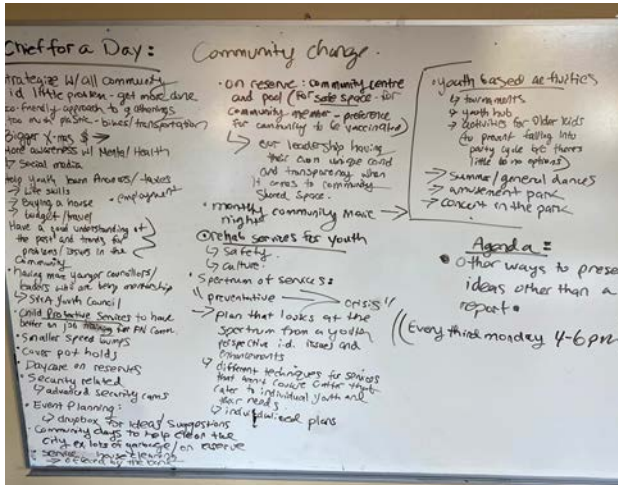 Chief for a Day:
Strategize w/ all community
id little problem - get more done
eco-friendly approach to gatherings
too much plastic - bikes/transportation
Bigger X-mas $ →
More awareness w/ Mental/Health
↳ Social media
Help youth learn finances/taxes
↳ Life skills
• employment
↳ Buying a house
↳ budget/travel
Have a good understanding of
the past and trends for
problems/issues in the
Community
• having more younger councillors/
leaders who are being mentorship
↳ Youth Council
• Child Protective Services to have
better on job training for FN Comm.
• Smaller speed bumps
• Cover pot holds
• Daycare on reserves
• Security related
↳ advanced security cams
• Event Planning:
↳ dropbox for ideas/suggestions
• Community days to help clean the
city ex lots of garbage/on reserve
• Service house cleaning
↳ offered by the band
Community change.
• on reserve: community centre
and pool (for safe space for
community member - preference
for community to be vaccinated)
↳ our leadership having
their own unique
and transparency when
it comes to community
Shared Space.
• monthly community movie →
nights
rehab services for youth
↳ safety.
↳ culture.
• Spectrum of services:
"preventative crisis"
→ plan that looks at the
spectrum from a youth
perspective i.d. issues and
enhancements
↳ different techniques for services
that aren't cookie cutter that
cater to individual youth and
their needs.
↳ individualized plans
• youth based activities
↳ tournaments
↳ youth hub
↳ activities for older kids
(to prevent falling into
party cycle b/c there's
little to no options)
→ summer/general dances
→ amusement park
→ concert in the park
Agenda:
• Other ways to prese
ideas other than a
report.
((Every third monday 4-6pm